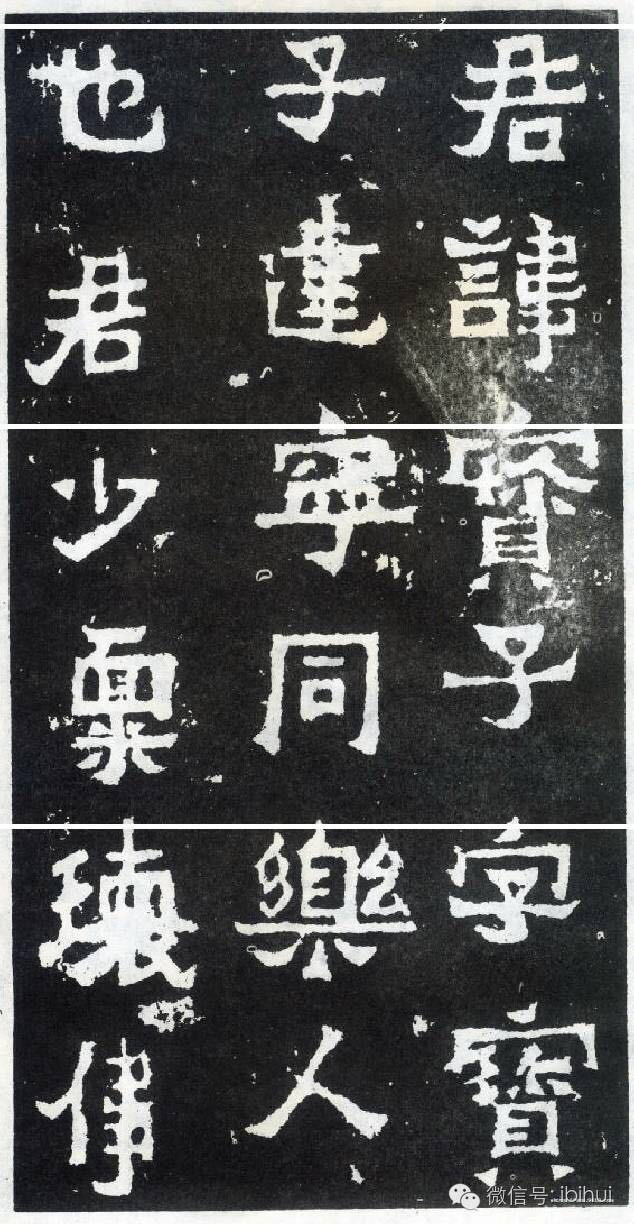 君諱寶子字寶
子達寧同樂人
也君少稟瓌偉
微信号: ibihui